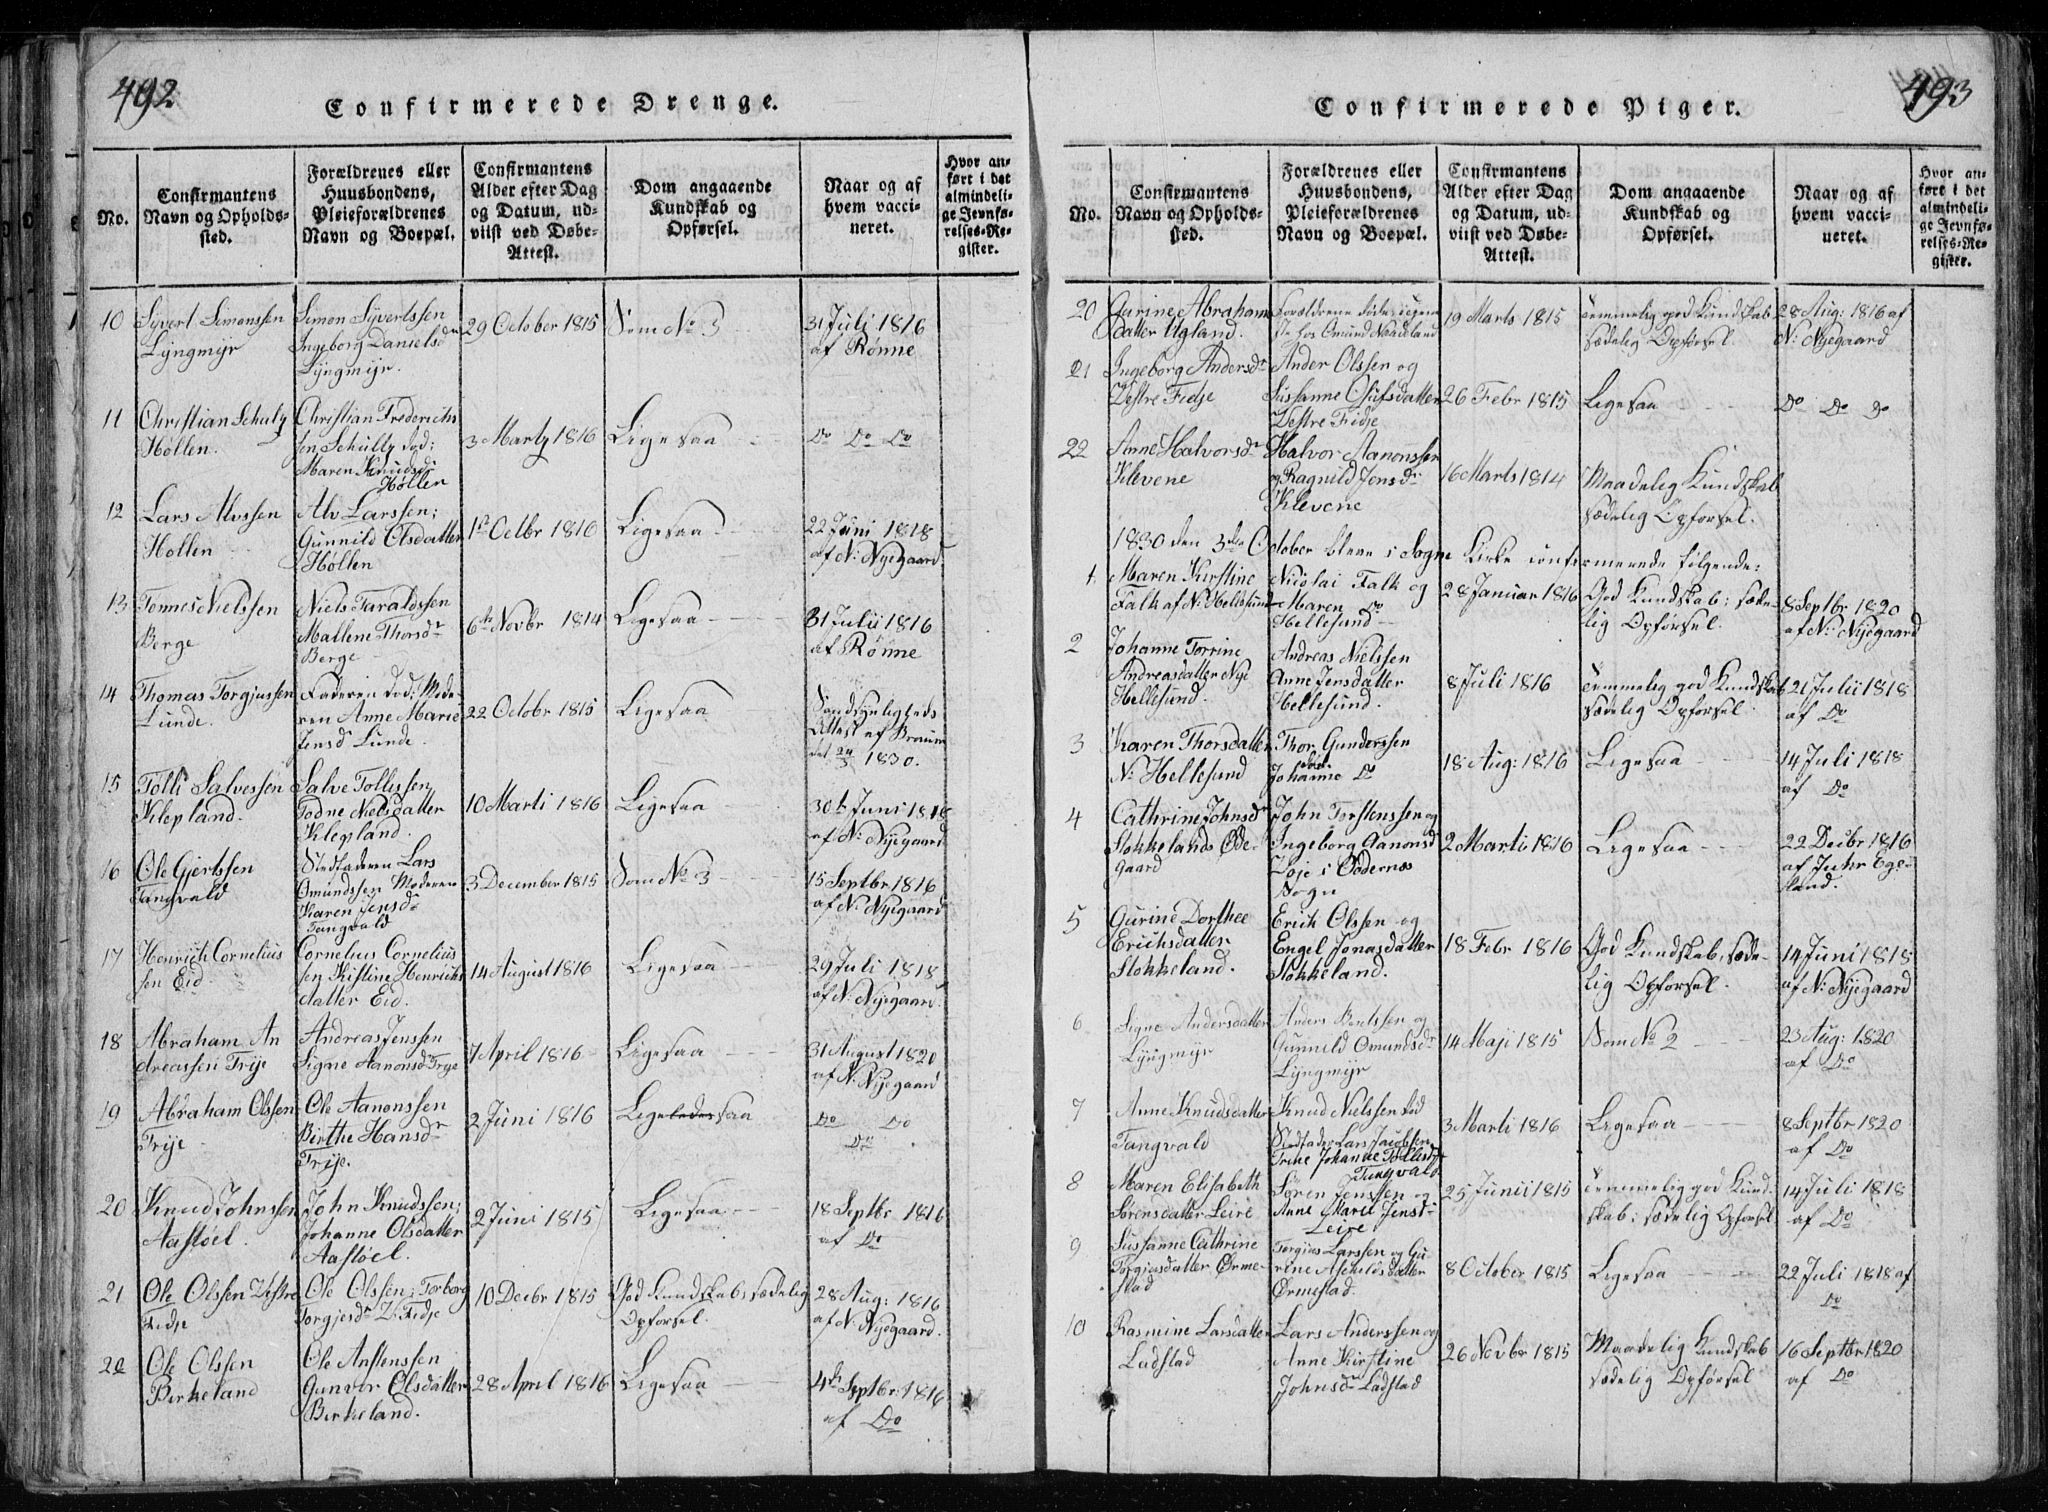 492
Confirmerede Drenge.
No.
Confirmantens
Navn og Opholds-
sted.
Forældrenes eller
Huusbondens,
Pleieforældrenes
Navn og Boepæl.
Confirmantens
Alder efter Dag
og Datum, ud-
viist ved Døbe-
Attest.
Dom angaaende
Kundskab og
Opførsel.
Naar og af
hvem vacci-
neret.
Hvor an-
ført i det
almindeli-
ge Jevnfø-
relses-Re-
gister.
10
Syvert Simonssen
Lyngmyr
Simon Syvertssen
Ingeborg Danielsdr
Lyngmyr.
29 October 1815
Som No 3
31 Juli 1816
af Rønne
11
Christian Schultz
Høllen.
Christian Frederichs
sen Schultz død;
Maren Knudsd:
Høllen
3 Martz 1816
Ligesaa
Do Do Do
12
Lars Alvssen
Hollen
Alv Larssen;
Gunnild Olsdatter
Høllen
1st Octbr 1816
Ligesaa
22 Juni 1818
af N: Nyegaard
13
Tønnes Nielssen
Berge
Niels Taraldssen
Mallene Thorsdr
Berge
6th Novbr 1814
Ligesaa
31 Julii 1816
af Rønne
14
Thomas Torgiussen
Lunde.
Faderen død; Mode-
ren Anne Marie
Jensd Lunde.
22 Octobr 1815
Ligesaa
Attest af
1830.
15
Tolli Salvessen
Klepland.
Salve Tollissen
Todne Nielsdatter
Klepland.
10 Marti 1816
Ligesaa
30th Juni 1818
af N: Nyegaard
16
Ole Gjertssen
Tangvald
Stedfaderen Lars
Omundssen Moderen
Karen Jensd
Tangvald
3 December 1815
Som No 3
15 Septbr 1816
af N: Nyegaard
17
Henrich Cornelius
sen Eid
Cornelius Cornelius
sen Kistine Henrichs
datter Eid.
14 August 1816
Ligesaa
29 Juli 1818
af N: Nyegaard
18
Abraham An
dreassen Trije
Andreas Jenssen
Signe Aanonsdr Trye
7 April 1816
Ligesaa
31 August 1820
af N: Nyegaard
19
Abraham Olssen
Trije
Ole Aanonssen
Birthe Hansdr
Trije.
2 Juni 1816
Ligeledes saa
Do Do
Do
20
Knud Johnssen
Aastøel.
John Knudssen;
Johanne Olsdatter
Aastøel.
2 Juni 1815
Ligesaa
18 Septbr 1816
af Do
21
Ole Olssen Vestre
Fidje
Ole Olssen; Torborg
Torgjesdr V: Fidje
10 Decbr 1815
God Kundskab, sædelig
Opførsel.
28 Aug: 1816
af N: Nyegaard.
22
Ole Olssen
Birkeland
Ole Anstenssen
Gunvor Olsdatter
Birkeland.
28 April 1816
Ligesaa
4th Septbr 1816
af Do
493
Confirmerede Piger.
No.
Confirmantens
Navn og Opholds-
sted.
Forældrenes eller
Huusbondens,
Pleieforældrenes
Navn og Boepæl.
Confirmantens
Alder efter Dag
og Datum, ud-
viist ved Døbe-
Attest.
Dom angaaende
Kundskab og
Opførsel.
Naar og af
hvem vacci-
neret.
Hvor an-
ført i det
almindeli-
ge Jevnfø-
relses-Re-
gister.
20
Gurine Abraham
datter Ugland.
Forældrene døde;
hos Omund Naadland
19 Marts 1815
temmelig god Kundskab
sædelig Opførsel.
28 Aug: 1816 af
N: Nyegaard
21
Ingeborg Andersdr
Vestre Fidje
Ander Olssen og
Sussanne Olufsdatter
Vestre Fidje
26 Febr 1815
Ligesaa
Do Do Do
22
Anne Halvorsdr
Klevene
Halvor Aanonssen
og Ragnild Jensdr
Klevene
16 Marts 1814
Maadelig Kundskab
sædelig Opførsel.
1830 den 3die October bleve i Sogne Kirke confirmerede følgende:
1
Maren Kirstine
Falk af N: Hellesund
Nicolai Falk og
Maren Do
Hellesund
28 Januar 1816
God Kundskab; sæde-
lig Opførsel.
8 Septbr 1820
af N: Nyegaard
2
Johanne Torrine
Andreasdatter Nye
Hellesund.
Andreas Nielssen
Anne Jensdatter
Hellesund.
8 Juli 1816
temmelig god Kundskab
sædelig Opførsel
21 Julii 1818
af Do
3
Karen Thorsdatter
N: Hellesund
Thor Gunderssen
død
Johanne Do
18 Aug: 1816
Ligesaa
14 Juli 1818
af Do
4
Cathrine Johnsdr
Stokkelands Øde-
gaard
John Torstenssen og
Ingeborg Aanonsd
Voje i Oddernæs
Sogn
2 Marti 1816
Ligesaa
22 Decbr 1816
af Juhr Ege-
land.
5
Gurine Dorthee
Erichsdatter
Stokkeland.
Erich Olssen og
Engel Jonasdatter
Stokkeland.
18 Febr 1816
God Kundskab, sæde-
lig Opførsel.
14 Juni 1818
af N: Nyegaard
6
Signe Andersdatter
Lyngmyr
Anders Bentssen og
Gunnild Omundsdr
Lyngmyr
14 Maji 1815
Som No 2
23 Aug: 1820
af Do
7
Anne Knudsdatter
Tangvald
Knud Nielssen død
Stedfader Lars Jacobsen
Trine Johanne Tollisdr
Tangvald
3 Marti 1816
Ligesaa
8 Septbr 1820
af Do
8
Maren Elisabeth
Sørensdatter Leire
Søren Jenssen og
Anne Marie Jensd:
Leire
25 Junii 1815
temmelig god Kund-
skab; sædelig Opførsel
14 Juli 1818
af Do
9
Sussanne Cathrine
Torgiusdatter Ørme-
stad
Torgius Larssen og Gu-
rine Aschildsdatter
Ørmestad
8 October 1815
Ligesaa
22 Juli 1818 af
Do
10
Rasmine Larsdatter
Ladstad
Lars Anderssen og
Anne Kirstine
Johnsdr Ladstad
26 Novbr 1815
Maadelig Kundskab
sædelig Opførsel
16 Septbr 1820
af Do